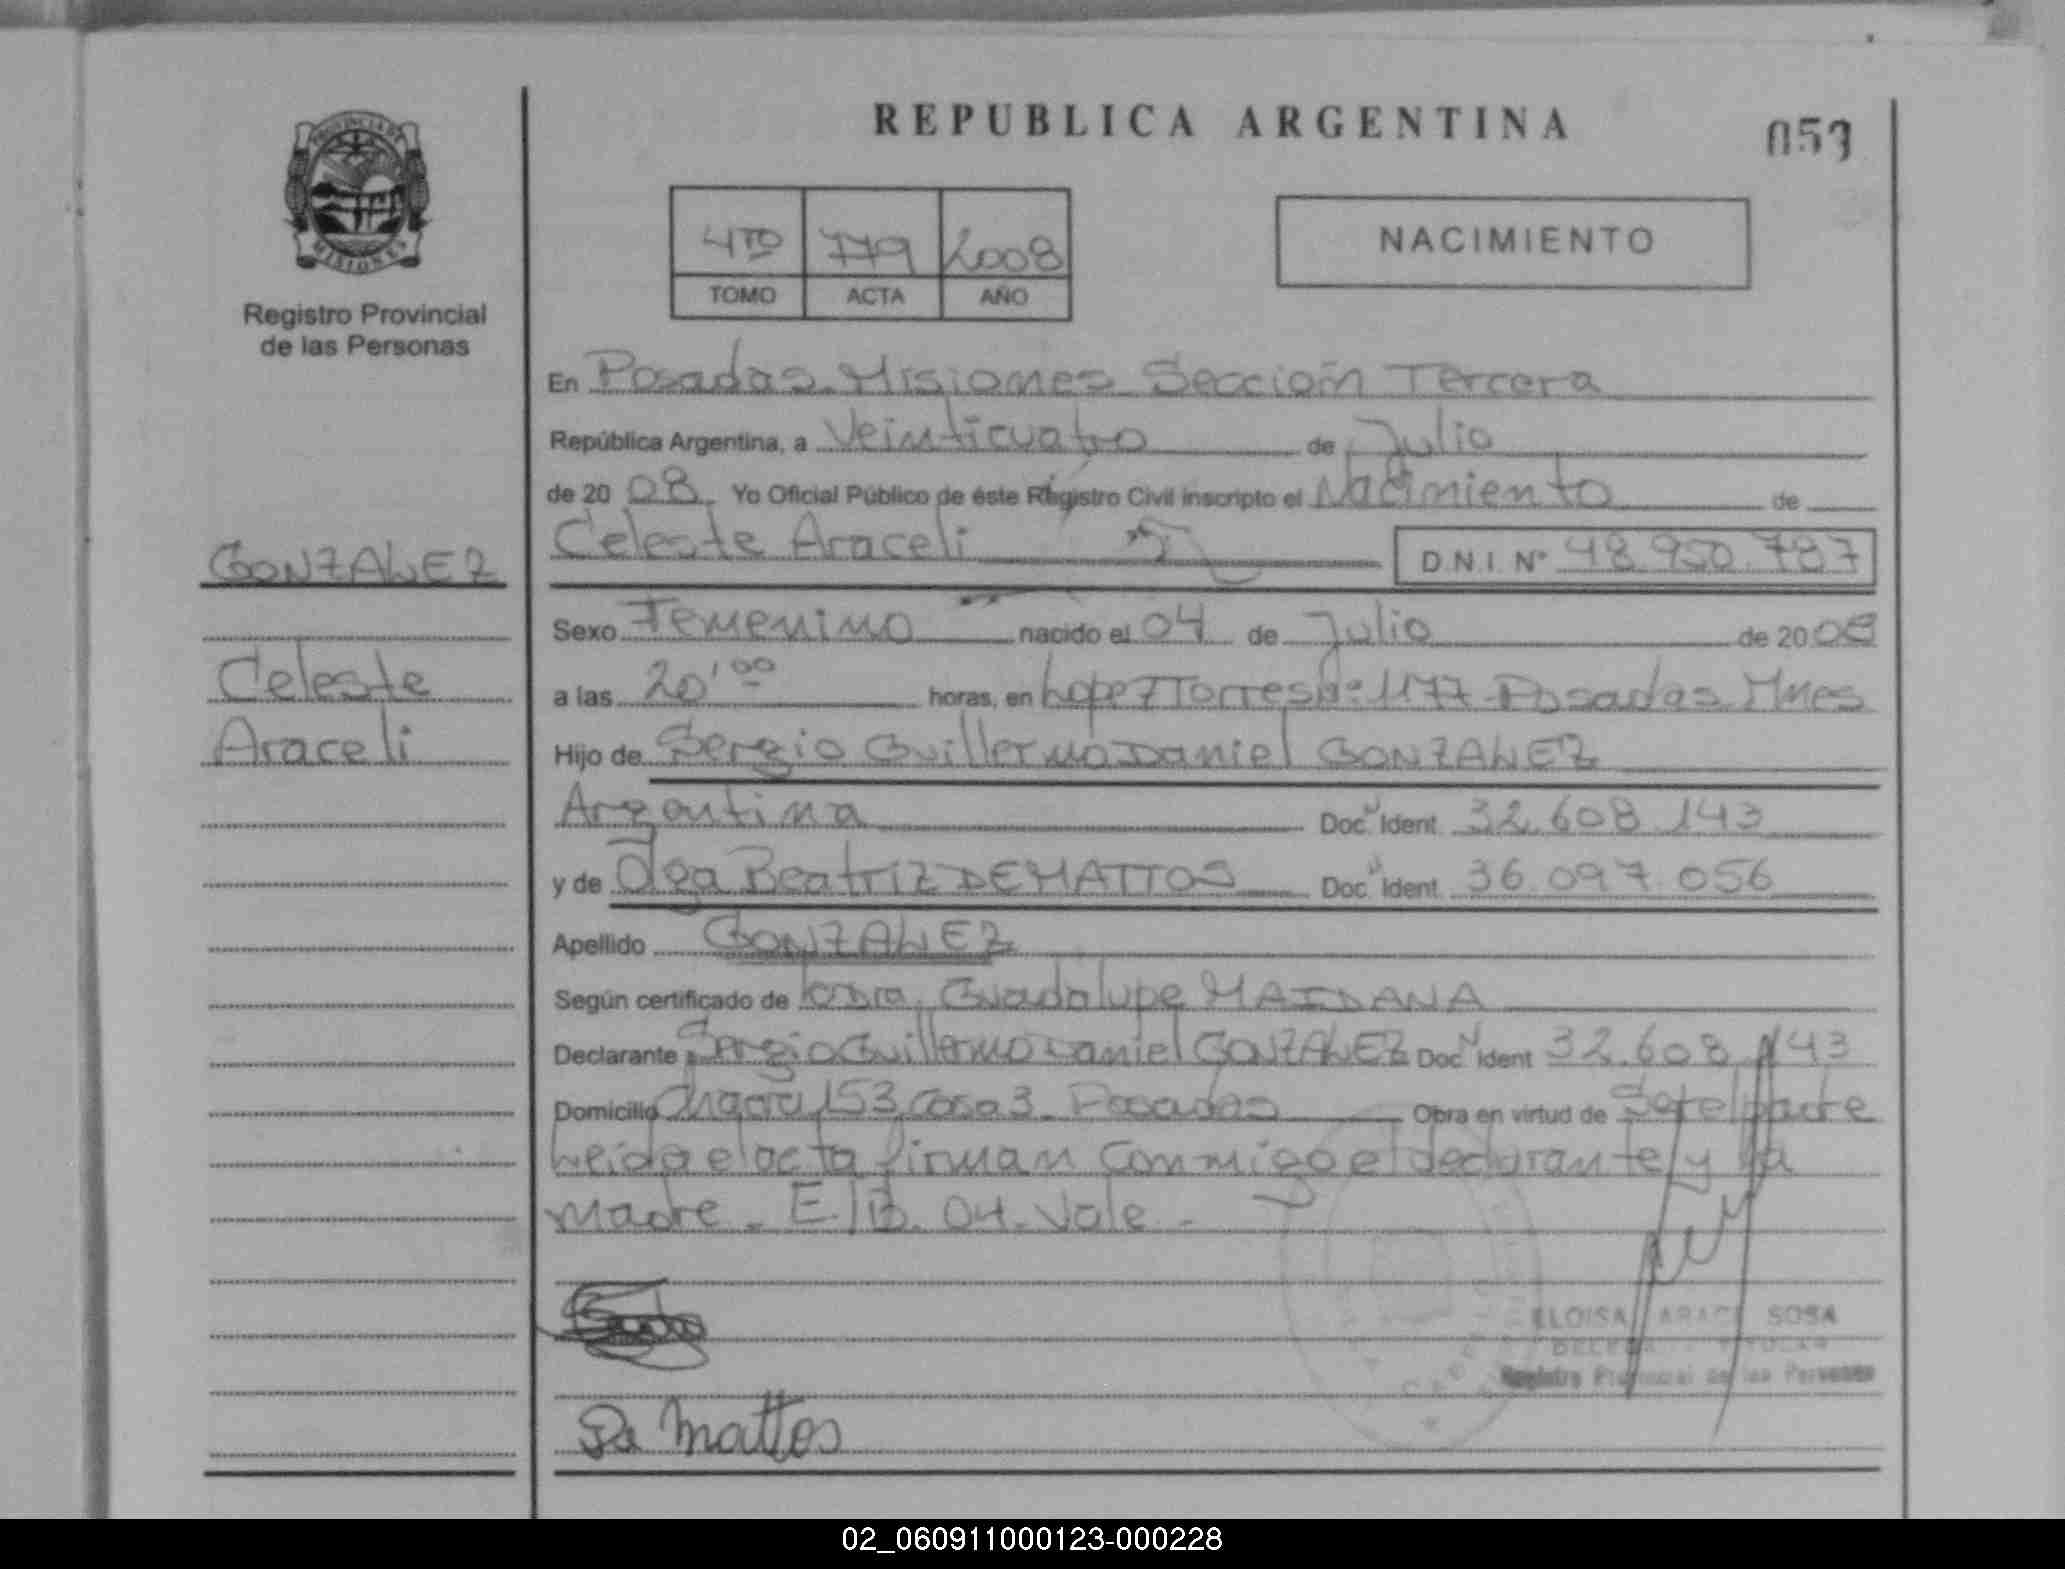 PROVINCIA DE
MISIONES
Registro Provincial
de las Personas
GONZALEZ
Celeste
Araceli
REPUBLICA ARGENTINA
053
4TO 779 2008
TOMO ACTA AÑO
NACIMIENTO
En Posadas Misiones Sección Tercera
República Argentina, a Veinticuatro de Julio
de 20 08. Yo Oficial Público de éste Registro Civil inscripto el Nacimiento de
Celeste Araceli D.N.I. Nº 48.950.787
Sexo Femenino nacido el 04 de Julio de 20 08
a las 20'00 horas, en Lopez Torres Nº 1177 Posadas Mnes
Hijo de Sergio Guillermo Daniel GONZALEZ
Argentina Doc. N Ident. 32.608.143
y de Olga Beatriz DE MATTOS Doc. N Ident. 36.097.056
Apellido GONZALEZ
Según certificado de Guadalupe MAIDANA
Declarante Sergio Guillermo Daniel GONZALEZ Doc. N Ident 32.608.143
Domicilio 153 casa 3 Posadas Obra en virtud de Ser el padre
Leída el acta firman conmigo el declarante y la
madre. E/B. 04. Vale.-
ELOISA ARACE SOSA
TITULAR
Registro Provincial de las Personas
De Mattos
02_060911000123-000228